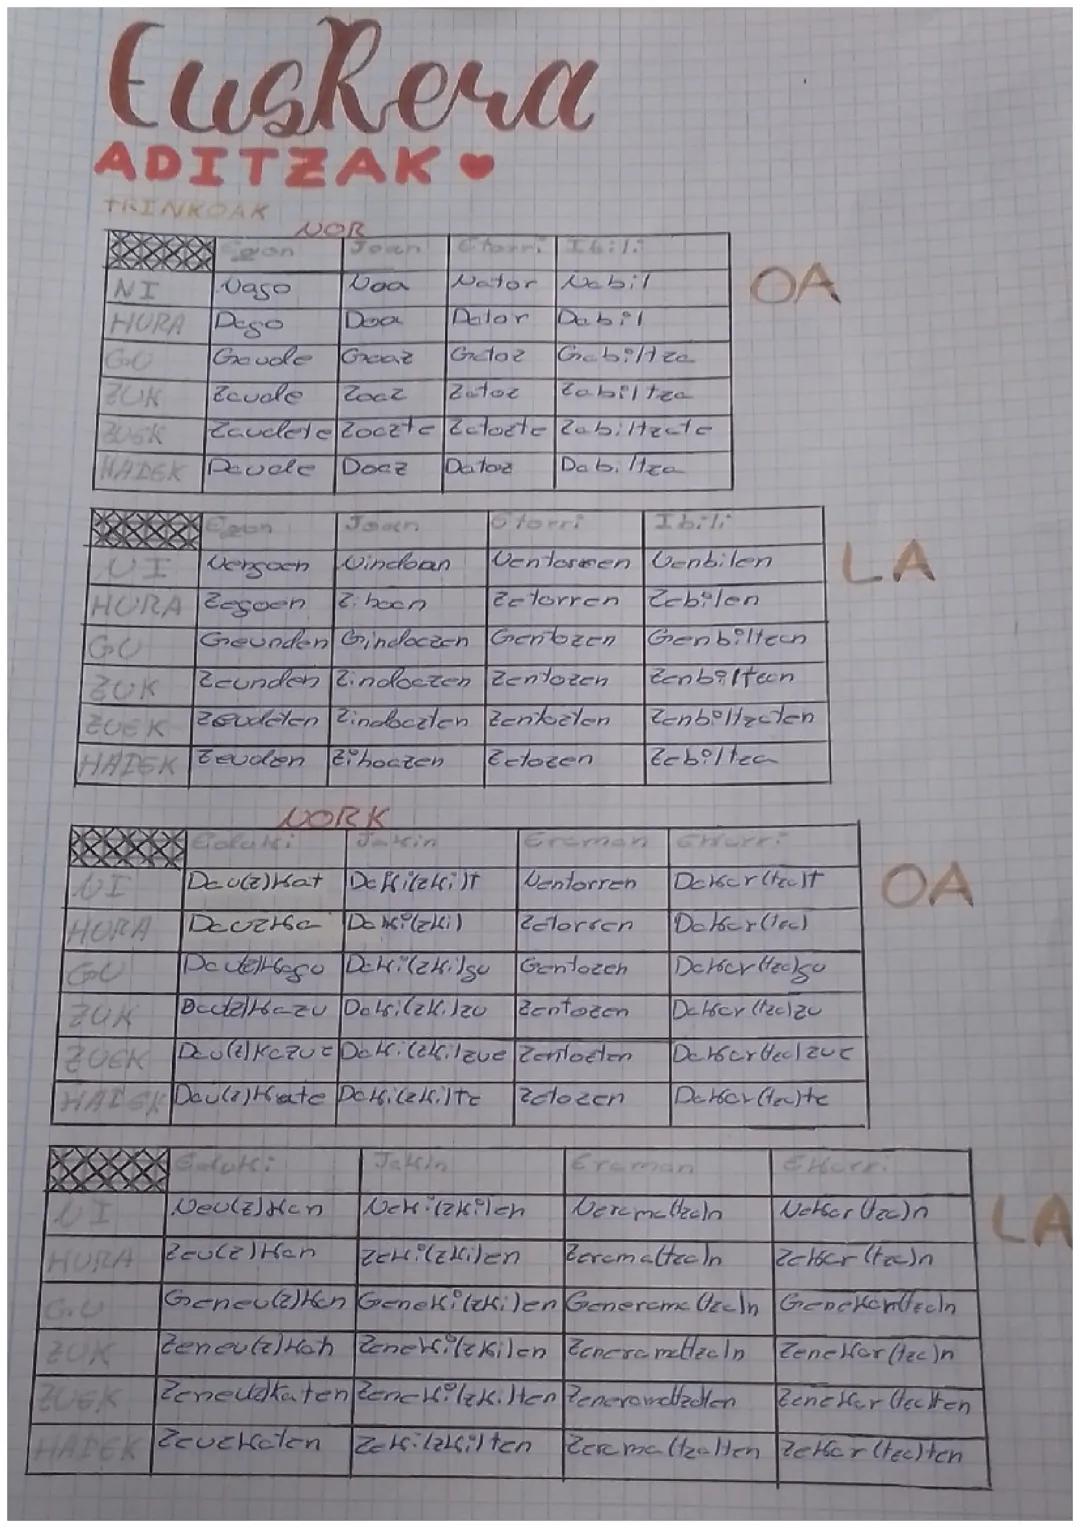 Euskera
ADITZAK
TRINKOAK
NOR
Egon Joan Etorri Ibili
OA
NI Nago Noa Nator Nabil
HURA Dago Doa Dator Dabil
GU Gaude Goaz Gatoz Gabiltza
ZUK Zaude Zoaz Zatoz Zabiltza
ZUEK Zaudete Zoazte Zatozte Zabiltzate
HAIEK Daude Doaz Datoz Dabiltza
Egon Joan Etorri Ibili
LA
NI Nengoen Nindoan Nentorren Nenbilen
HURA Zegoen Zihoan Zetorren Zebilen
GU Geunden Gindoazen Gentozen Genbiltzan
ZUK Zeunden Zindoazen Zentozen
ZUEK Zeudeten Zindoazten Zentozten Zenbiltzaten
HAIEK Zeuden Zihoazen Zetozen Zebiltza
NORK
Eduki Jakin Eraman Ekarri
OA
NI Dau(z)kat Daki(zki)t Nentorren Dakar(tza)t
HURA Dauzka Daki(zki) Zetorren Dakar(tza)
GU Dau(z)kagu Daki(zki)gu Gentozen Dakar(tza)gu
ZUK Dau(z)kazu Daki(zki)zu Zentozen Dakar(tza)zu
ZUEK Dau(z)kazue Daki(zki)zue Zentozten Dakar(tza)zue
HAIEK Dau(z)kate Daki(zki)te Zetozen Dakar(tza)te
Eduki Jakin Eraman Ekarri
LA
NI Neu(z)kan Neki(zki)en Nerama(tza)n Nekar(tza)n
HURA Zeu(z)kan Zeki(zki)en Zerama(tza)n Zekar(tza)n
GU Geneu(z)kan Geneki(zki)en Generama(tza)n Genekar(tza)n
ZUK Zeneu(z)kan Zeneki(zki)en Zenerama(tza)n Zenekar(tza)n
ZUEK Zeneu(z)katen Zeneki(zki)ten Zenerama(tza)ten Zenekar(tza)ten
HAIEK Zeuzkaten Zeki(zki)ten Zerama(tza)ten Zekar(tza)ten